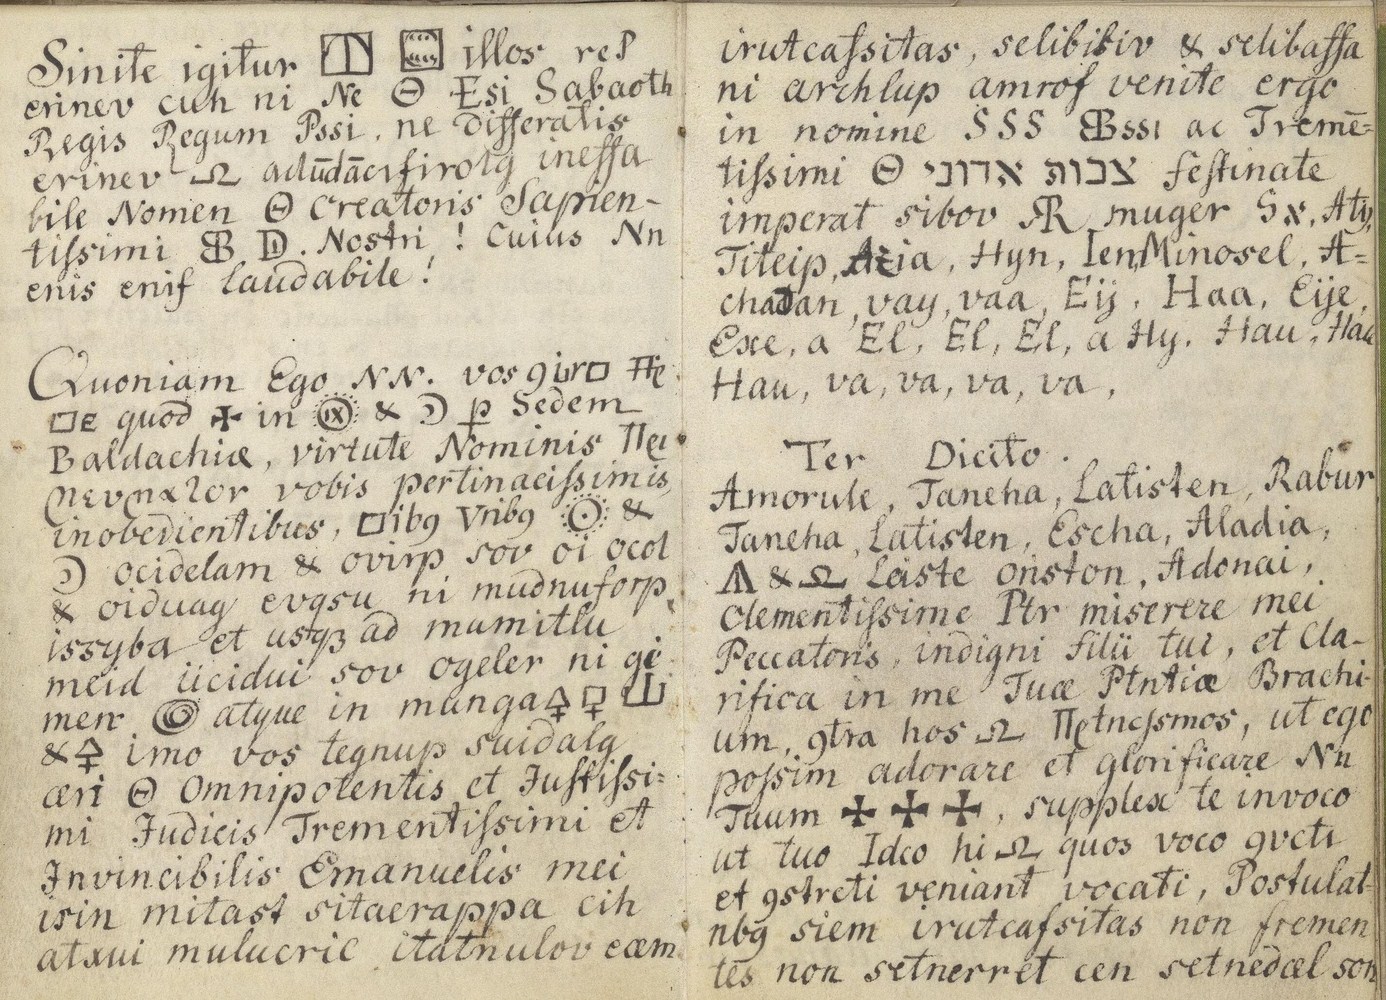 Sinite igitur illos res
erinev cuh ni Ne Θ Esi Sabaoth
Regis Regum Pssi. ne differatis
erinev
bile Nomen Θ Creatoris Sapien-
tissimi Nostri ! Cuius Nn
enis enif laudabile !
Quoniam Ego NN. vos
quod ✠ in & Sedem
Baldachiæ, virtute Nominis
vobis pertinacissimis
inobedientibus, &
ocidelam & ovirp sov oi ocol
& oiduag evqsu ni mudnuforp
issyba et usqȝ ad mumitlu
meid iicidui sov ogeler ni ge
men atque in munga
& imo vos tegnup suidalg
æri Θ Omnipotentis et Justissi=
mi Judicis Trementissimi et
Invincibilis Emanuelis mei
isin mitast sitaerappa cih
atxui mulucric itatnulov eæm
irutcafsitas, selibisiv & selibassa
ni archlup amrof venite ergo
in nomine SSS ac Tremē=
tissimi Θ צבות אדוני festinate
imperat sibov muger
Titeip, Azia, Hyn, Ien, Minosel, A=
chadan, vay, vaa, Eij, Haa, Eije,
Exe, a El, El, El, a Hy. Hau, Haa
Hau, va, va, va, va,
Ter Dicito.
Amorule, Taneha, Latisten, Rabur
Taneha, Latisten, Escha, Aladia,
& Ω Leiste onston, Adonai,
Clementissime Ptr miserere mei
Peccatoris, indigni filii tui, et Cla-
rifica in me Tuæ Ptntiæ Brachi-
um, 9tra hos Ω ut ego
possim adorare et glorificare Nn
Tuum ✠ ✠ ✠, supplex te invoco
ut tuo Idco hi Ω quos voco 9vcti
et 9streti veniant vocati, Postulat-
nb9 siem irutcafsitas non fremen
tes non setnerret cen setnedæl son